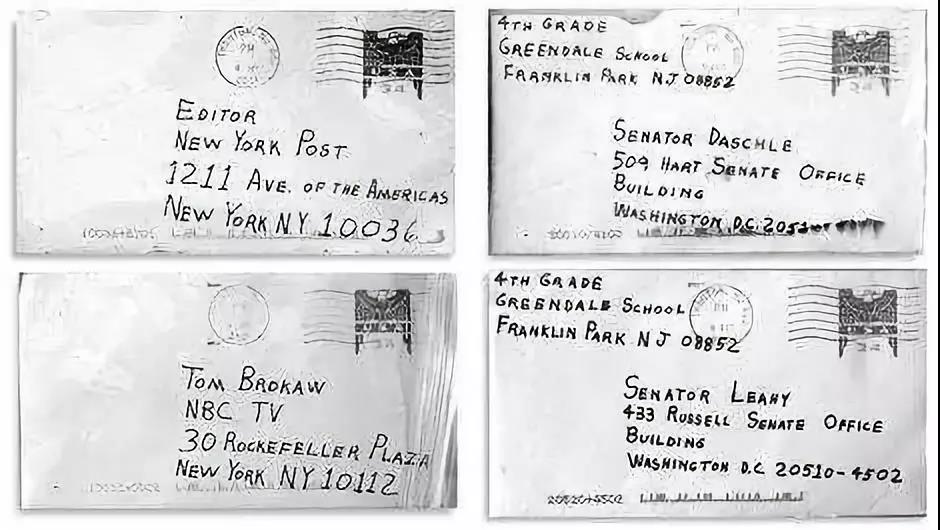 EDITOR
NEW YORK POST
1211 AVE. OF THE AMERICAS
NEW YORK NY 10036
4TH GRADE
GREENDALE SCHOOL
FRANKLIN PARK NJ 08852
SENATOR DASCHLE
509 HART SENATE OFFICE
BUILDING
WASHINGTON D.C. 2051
TOM BROKAW
NBC TV
30 ROCKEFELLER PLAZA
NEW YORK NY 10112
4TH GRADE
GREENDALE SCHOOL
FRANKLIN PARK NJ 08852
SENATOR LEAHY
433 RUSSELL SENATE OFFICE
BUILDING
WASHINGTON D.C. 20510-4502